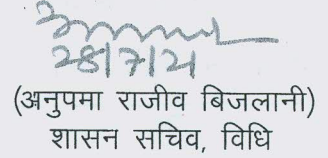 28/7/21
(अनुपमा राजीव बिजलानी)
शासन सचिव, विधि